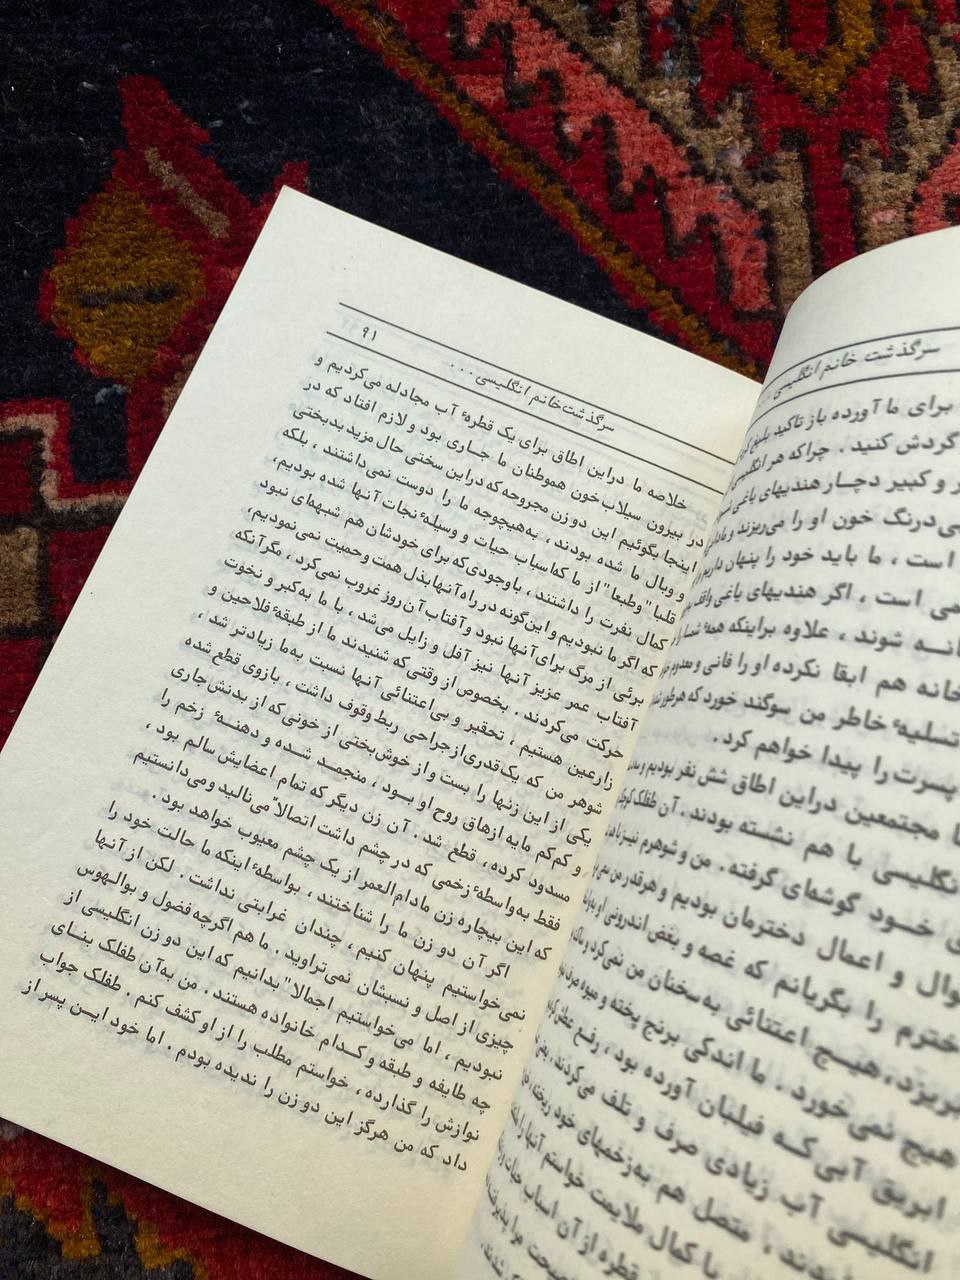 سرگذشت خانم انگلیسی . . .
برای ما آورده باز تاکید بلیغ
گردش کنید . چراکه هر انگلیسی
و کبیر دچار هندیهای یاغی
درنگ خون او را می‌ریزند و
است ، ما باید خود را پنهان داریم
است ، اگر هندیهای یاغی واقف
شوند ، علاوه براینکه همهٔ شما را
خانه هم ابقا نکرده او را فانی و معدوم
تسلیهٔ خاطر من سوگند خورد که هرطور
پسرت را پیدا خواهم کرد .
مجتمعین دراین اطاق شش نفر بودیم و
با هم نشسته بودند . آن طفلک
خود گوشه‌ای گرفته . من و شوهرم نیز
و اعمال دخترمان بودیم و هرقدر من سعی
را بگریانم که غصه و بغض اندرونی او
هیچ اعتنائی به سخنان من نمی‌کرد و
هیچ نمی‌خورد . ما اندکی برنج پخته و میوه صرف
ابریق آبی که فیلبان آورده بود ، رفع عطش
انگلیسی آب زیادی صرف و تلف می‌کردند .
متصل هم به زخمهای خود ریخته
با کمال ملایمت خواستم آنها را
قطره از آن اسباب حیات
مرا
۹۱
سرگذشت خانم انگلیسی . . .
خلاصه ما دراین اطاق برای یک قطرهٔ آب مجادله می‌کردیم و
در بیرون سیلاب خون هموطنان ما جاری بود و لازم افتاد که در
اینجا بگوئیم این دو زن مجروحه که دراین سختی حال مزید بدبختی
و وبال ما شده بودند ، به‌هیچوجه ما را دوست نمی‌داشتند ، بلکه
قلبا" وطبعا" از ما که اسباب حیات و وسیلهٔ نجات آنها شده بودیم،
کمال نفرت را داشتند ، باوجودی که برای خودشان هم شبهه‌ای نبود
که اگر ما نبودیم و این‌گونه در راه آنها بذل همت وحمیت نمی نمودیم،
برئی از مرگ برای آنها نبود و آفتاب آن روز غروب نمی‌کرد ، مگر آنکه
آفتاب عمر عزیز آنها نیز آفل و زایل می‌شد ، با ما به‌کبر و نخوت
حرکت می‌کردند . بخصوص از وقتی که شنیدند ما از طبقهٔ فلاحین و
زارعین هستیم ، تحقیر و بی‌اعتنائی آنها نسبت به‌ما زیادتر شد ،
شوهر من که یک‌قدری از جراحی ربط وقوف داشت ، بازوی قطع شده
یکی از این زنها را بست و از خوش‌بختی از خونی که از بدنش جاری
و کم‌کم مایه ازهاق روح او بود ، منجمد شده و دهنهٔ زخم را
مسدود کرده ، قطع شد . آن زن دیگر که تمام اعضایش سالم بود ،
فقط به‌واسطهٔ زخمی که در چشم داشت اتصالا" می نالید و می‌دانستیم
که این بیچاره زن مادام‌العمر از یک چشم معیوب خواهد بود .
اگر آن دو زن ما را شناختند ، بواسطهٔ اینکه ما حالت خود را
نمی‌خواستیم پنهان کنیم ، چندان غرابتی نداشت . لکن از آنها
چیزی از اصل و نسبشان نمی‌تراوید . ما هم اگرچه فضول و بوالهوس
نبودیم ، اما می‌خواستیم اجمالا" بدانیم که این دو زن انگلیسی از
چه طایفه و طبقه و کدام خانواده هستند . من به‌آن طفلک بنای
نوازش را گذارده ، خواستم مطلب را از او کشف کنم . طفلک جواب
داد که من هرگز این دو زن را ندیده بودم . اما خود این پسر از